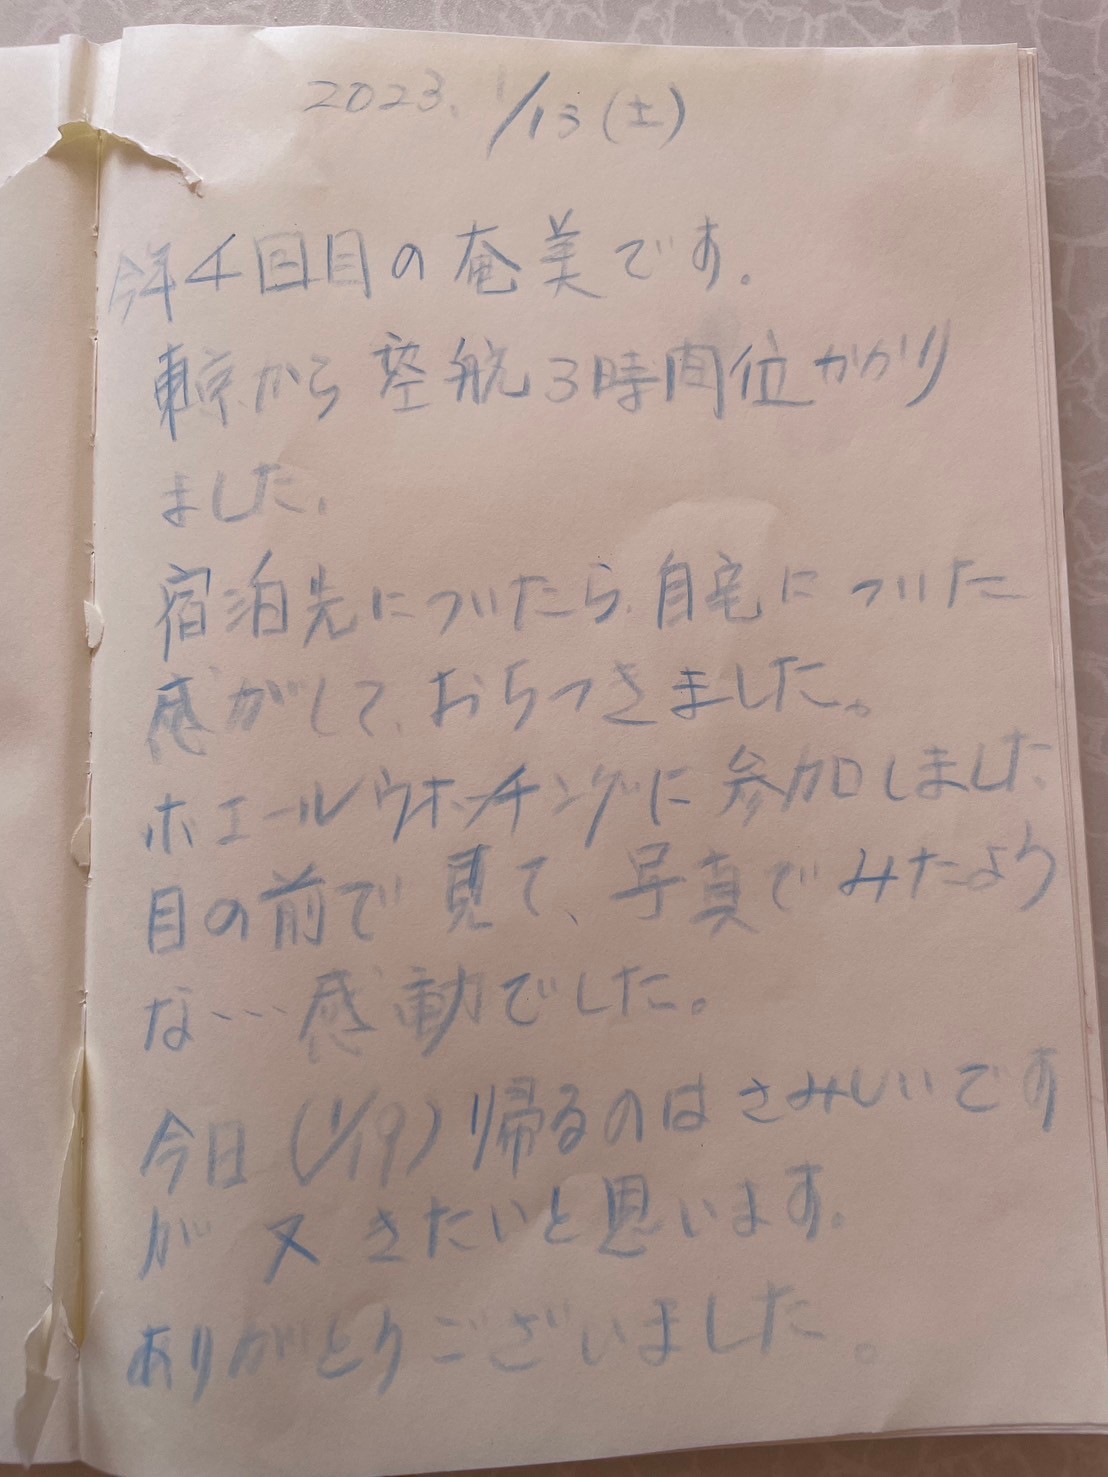 2023. 1/13(土)
今年4回目の奄美です.
東京から 空航 3時間位かかり
ました.
宿泊先についたら、自宅についた
感がして、おちつきました。
ホエールウオッチングに参加しました
目の前で見て、写真でみたよう
な…感動でした。
今日(1/19)帰るのはさみしいです
が 又 きたいと思います.
ありがとうございました。